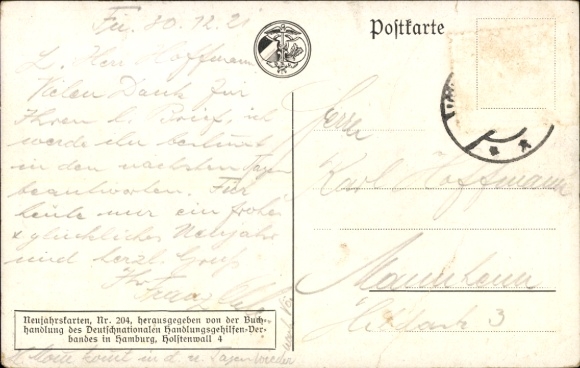 Fü. 30.12.21
L. Herr Hoffmann
Vielen Dank für
Ihren l. Brief, ich
werde ihn
in den nächsten Tagen
beantworten. Für
heute nur ein frohes
& glückliches Neujahr
und herzl. Gruß
Ihr
Franz
Neujahrskarten, Nr. 204, herausgegeben von der Buch-
handlung des Deutschnationalen Handlungsgehilfen-Ver-
bandes in Hamburg, Holstenwall 4
kommt in d. n. Tagen wieder
Postkarte
Herrn
Karl Hoffmann
Mannheim
3